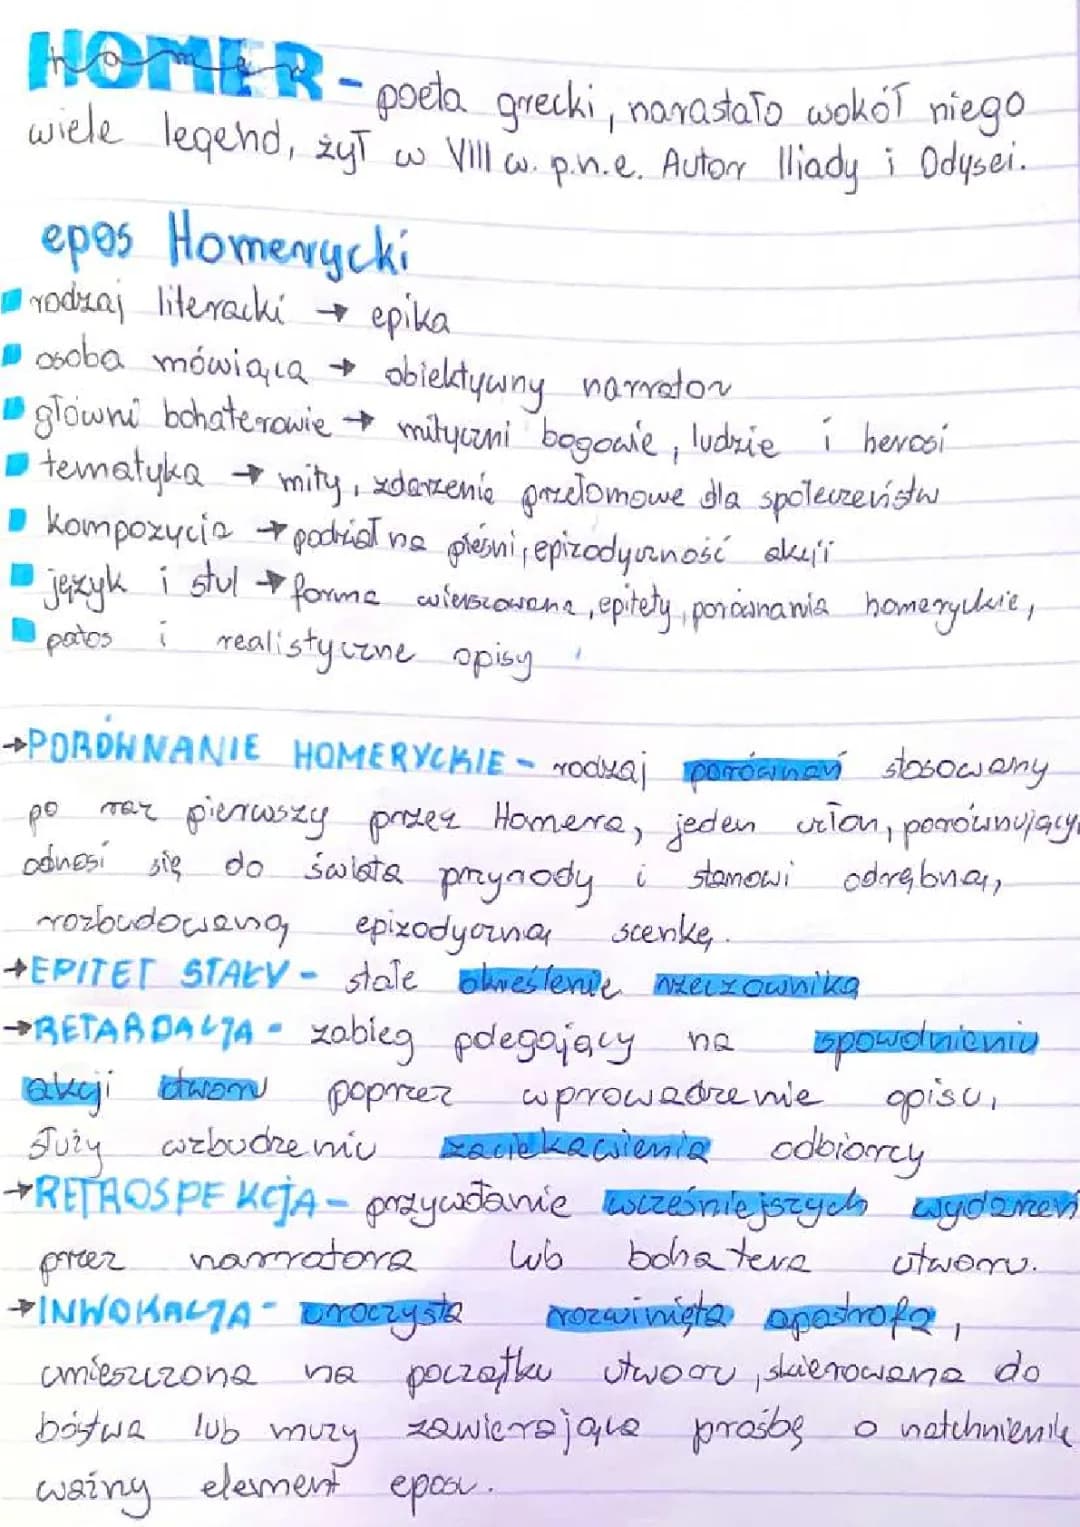 HOMER - poeta grecki, narastało wokół niego
wiele legend, żył w VIII w. p.n.e. Autor Iliady i Odysei.
epos Homerycki
rodzaj literacki → epika
osoba mówiąca → obiektywny narrator
główni bohaterowie → mityczni bogowie, ludzie i herosi
tematyka → mity, zdarzenie przełomowe dla społeczeństw
kompozycja → podział na pieśni, epizodyczność akcji
język i styl → forma wierszowana, epitety, porównania homeryckie,
patos i realistyczne opisy
→ PORÓWNANIE HOMERYCKIE - rodzaj porównań stosowany
po raz pierwszy przez Homera, jeden człon, porównujący,
odnosi się do świata przyrody i stanowi odrębną,
rozbudowaną epizodyczną scenkę.
→ EPITET STAŁY - stałe określenie rzeczownika
→ RETARDACJA - zabieg polegający na spowolnieniu
akcji utworu poprzez wprowadzenie opisu,
służy wzbudzeniu zaciekawienia odbiorcy
→ RETROSPEKCJA - przywołanie wcześniejszych wydarzeń
przez narratora lub bohatera utworu.
→ INWOKACJA - uroczysta rozwinięta apostrofa,
umieszczona na początku utworu, skierowana do
bóstwa lub muzy zawierająca prośbę o natchnienie
ważny element eposu.